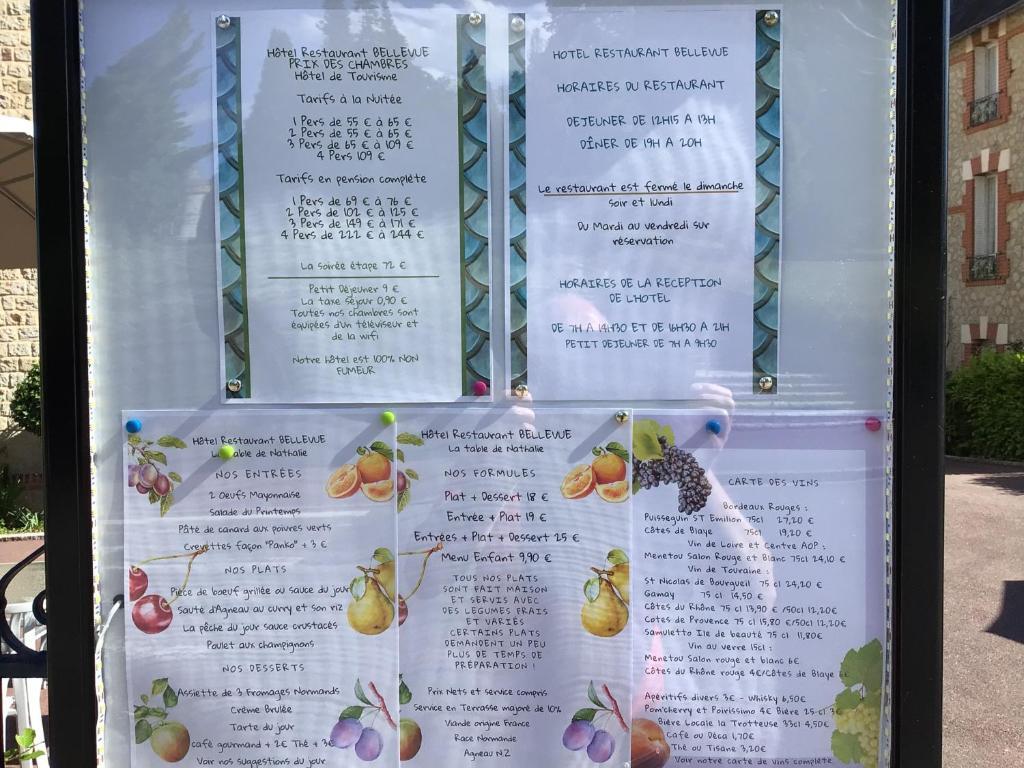 Hôtel Restaurant BELLEVUE
PRIX DES CHAMBRES
Hôtel de Tourisme
Tarifs à la Nuitée
1 Pers de 55 € à 65 €
2 Pers de 55 € à 65 €
3 Pers de 65 € à 109 €
4 Pers 109 €
Tarifs en pension complète
1 Pers de 69 € à 76 €
2 Pers de 102 € à 125 €
3 Pers de 149 € à 171 €
4 Pers de 222 € à 244 €
La soirée étape 72 €
Petit Déjeuner 9 €
La taxe séjour 0,90 €
Toutes nos chambres sont
équipées d'un téléviseur et
de la wifi
Notre hôtel est 100% NON
FUMEUR
HOTEL RESTAURANT BELLEVUE
HORAIRES DU RESTAURANT
DEJEUNER DE 12H15 A 13H
DÎNER DE 19H A 20H
Le restaurant est fermé le dimanche
soir et lundi
Du Mardi au vendredi sur
réservation
HORAIRES DE LA RECEPTION
DE L'HOTEL
DE 7H A 14H30 ET DE 16H30 A 21H
PETIT DEJEUNER DE 7H A 9H30
Hôtel Restaurant BELLEVUE
La table de Nathalie
NOS ENTRÉES
2 Oeufs Mayonnaise
Salade du Printemps
Pâté de canard aux poivres verts
Crevettes façon "Panko" + 3 €
NOS PLATS
Pièce de boeuf grillée ou sauce du jour
Sauté d'Agneau au curry et son riz
La pêche du jour sauce crustacés
Poulet aux champignons
NOS DESSERTS
Assiette de 3 Fromages Normands
Crème Brulée
Tarte du jour
café gourmand + 2€ Thé + 3€
Voir nos suggestions du jour
Hôtel Restaurant BELLEVUE
La table de Nathalie
NOS FORMULES
Plat + Dessert 18 €
Entrée + Plat 19 €
Entrées + Plat + Dessert 25 €
Menu Enfant 9,90 €
TOUS NOS PLATS
SONT FAIT MAISON
ET SERVIS AVEC
DES LEGUMES FRAIS
ET VARIÉS
CERTAINS PLATS
DEMANDENT UN PEU
PLUS DE TEMPS DE
PRÉPARATION !
Prix Nets et service compris
Service en Terrasse majoré de 10%
Viande origine France
Race Normande
Agneau N.Z
CARTE DES VINS
Bordeaux Rouges :
Puisseguin ST Emilion 75cl 27,20 €
Côtes de Blaye 75cl 19,20 €
Vin de Loire et Centre AOP :
Menetou Salon Rouge et Blanc 75cl 24,10 €
Vin de Touraine :
St Nicolas de Bourgueil 75 cl 24,20 €
Gamay 75 cl 14,50 €
Côtes du Rhône 75 cl 13,90 € /50cl 12,20€
Cotes de Provence 75 cl 15,80 €/50cl 12,20€
Samuletto Ile de beauté 75 cl 11,80€
Vin au verre 15cl :
Menetou Salon rouge et blanc 6€
Côtes du Rhône rouge 4€/Côtes de Blaye
Apéritifs divers 3€ - Whisky 6,50€
Pom'cherry et Poirissimo 4€ Bière 25 cl
Bière Locale la Trotteuse 33cl 4,50€
Café ou Déca 1,70€
Thé ou Tisane 3,20€
Voir notre carte de vins complète